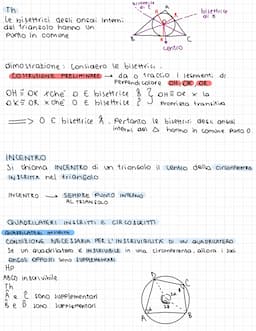 Th:
Le bisettrici degli angoli interni
del triangolo hanno un
punto in comune
bisettrice
di C
bisettrice
di B
centro
dimostrazione: considero le bisettrici.
COSTRUZIONE PRELIMINARE → da O traccio i segmenti di
perpendicolare OH, OK, OR
OH ≅ OX xché O ∈ bisettrice
OK ≅ OR xché O ∈ bisettrice
OH ≅ OR x la
proprietà transitiva
⟹ O ∈ bisettrice Â. Pertanto le bisettrici degli angoli
interni del Δ hanno in comune punto O.
INCENTRO
Si chiama INCENTRO di un triangolo il centro della circonferenza
INSCRITTA nel triangolo
INCENTRO → SEMPRE PUNTO INTERNO
AL TRIANGOLO
QUADRILATERI INSCRITTI E CIRCOSCRITTI
QUADRILATERI INSCRITTI
CONDIZIONE NECESSARIA PER L'INSCRIVIBILITÀ DI UN QUADRILATERO
Se un quadrilatero è INSCRIVIBILE in una circonferenza, allora i suoi
angoli opposti sono SUPPLEMENTARI
Hp
ABCD inscrivibile
Th
 e Ĉ sono supplementari
B e D̂ sono supplementari
D
C
A
B